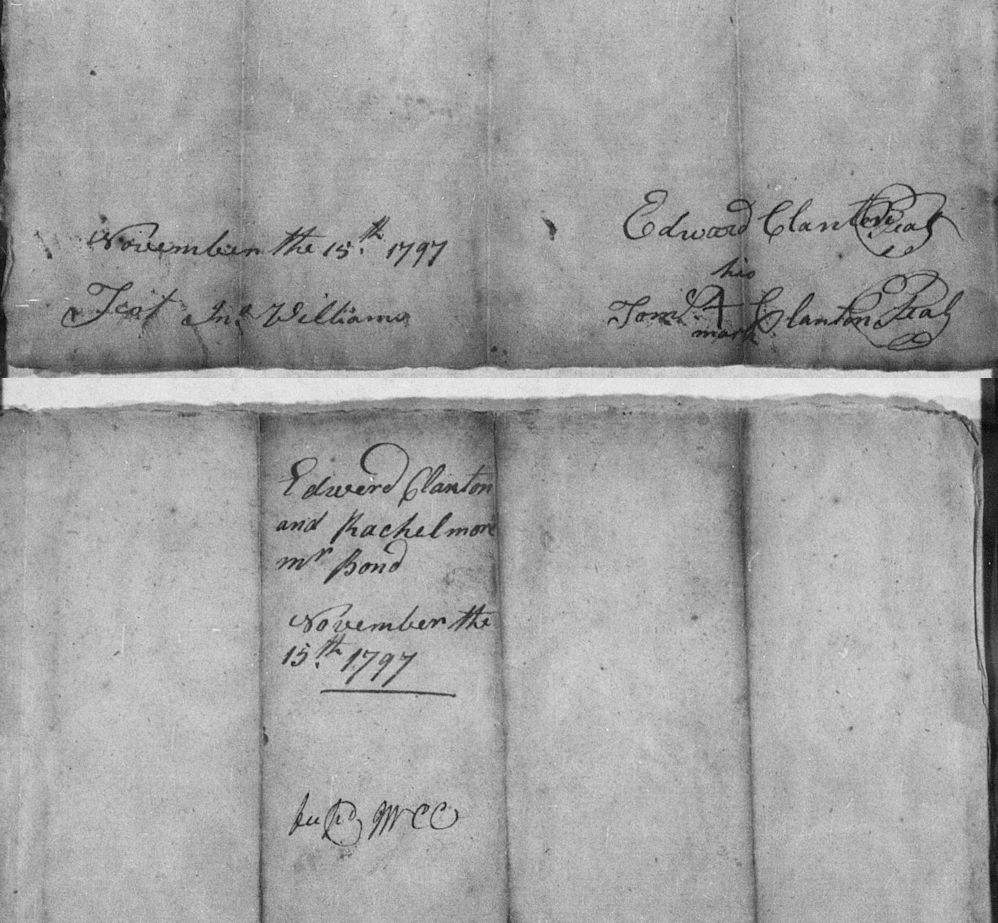 Edward Clanton Seal
November the 15th. 1797
his
Test Jno Williams
Tomh. Clanton Seal
mark
Edward Clanton
and Rachel more
mr Bond
November the
15th. 1797
WCC